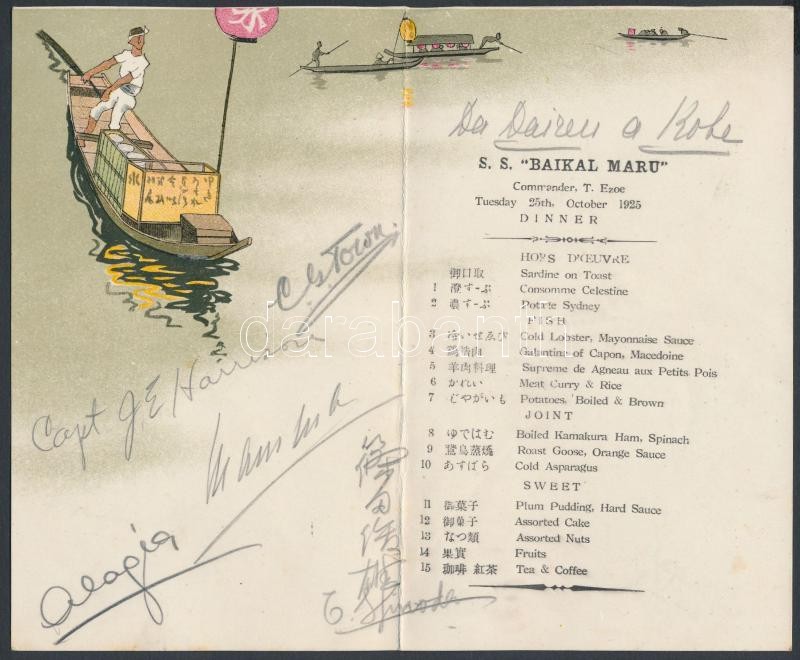 Da Dairen a Kobe
S. S. "BAIKAL MARU"
Commander, T. Ezoe
Tuesday 25th, October 1925
DINNER
HORS D'ŒUVRE
御口取 Sardine on Toast
1 澄すーぷ Consomme Celestine
2 濃すーぷ Potate Sydney
FISH
3 冷いせゑび Cold Lobster, Mayonnaise Sauce
4 Galantine of Capon, Macedoine
5 羊肉料理 Supreme de Agneau aux Petits Pois
6 かれい Meat Curry & Rice
7 じやがいも Potatoes, Boiled & Brown
JOINT
8 ゆではむ Boiled Kamakura Ham, Spinach
9 鵞鳥蒸燒 Roast Goose, Orange Sauce
10 あすぱら Cold Asparagus
SWEET
11 御菓子 Plum Pudding, Hard Sauce
12 御菓子 Assorted Cake
13 なつ類 Assorted Nuts
14 果實 Fruits
15 珈琲 紅茶 Tea & Coffee
C. G. Town.
Capt J. E. Harrison
Alagia
darabanth